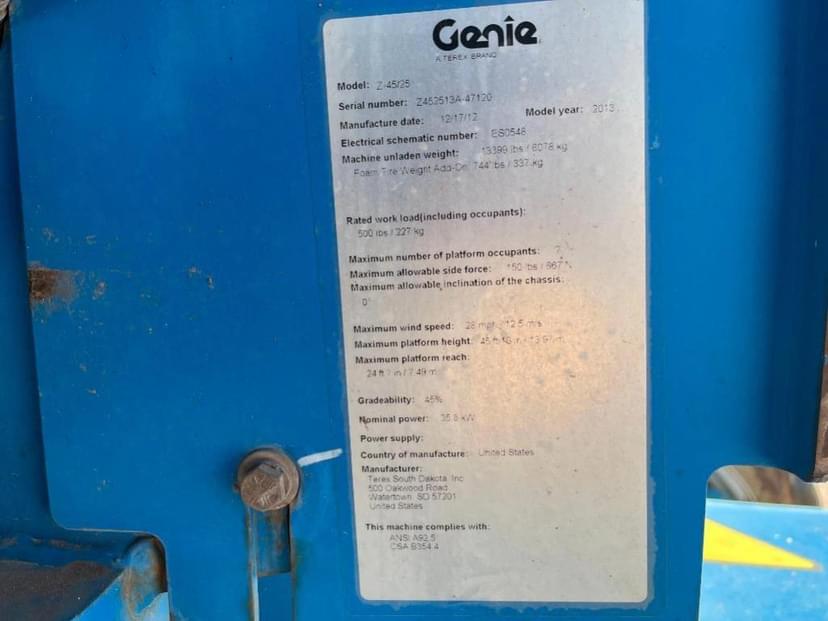 Genie
A TEREX BRAND
Model: Z-45/25
Serial number: Z452513A-47120
Manufacture date: 12/17/12 Model year: 2013
Electrical schematic number: ES0548
Machine unladen weight: 13399 lbs / 6078 kg
Foam Tire Weight Add-On: 744 lbs / 337 kg
Rated work load(including occupants):
500 lbs / 227 kg
Maximum number of platform occupants: 2
Maximum allowable side force: 150 lbs / 667 N
Maximum allowable inclination of the chassis:
0°
Maximum wind speed: 28 mph / 12.5 m/s
Maximum platform height: 45 ft / 13.97 m
Maximum platform reach:
24 ft 7 in / 7.49 m
Gradeability: 45%
Nominal power: 35.8 kW
Power supply:
Country of manufacture: United States
Manufacturer:
Terex South Dakota, Inc
500 Oakwood Road
Watertown, SD 57201
United States
This machine complies with:
ANSI A92.5
CSA B354.4